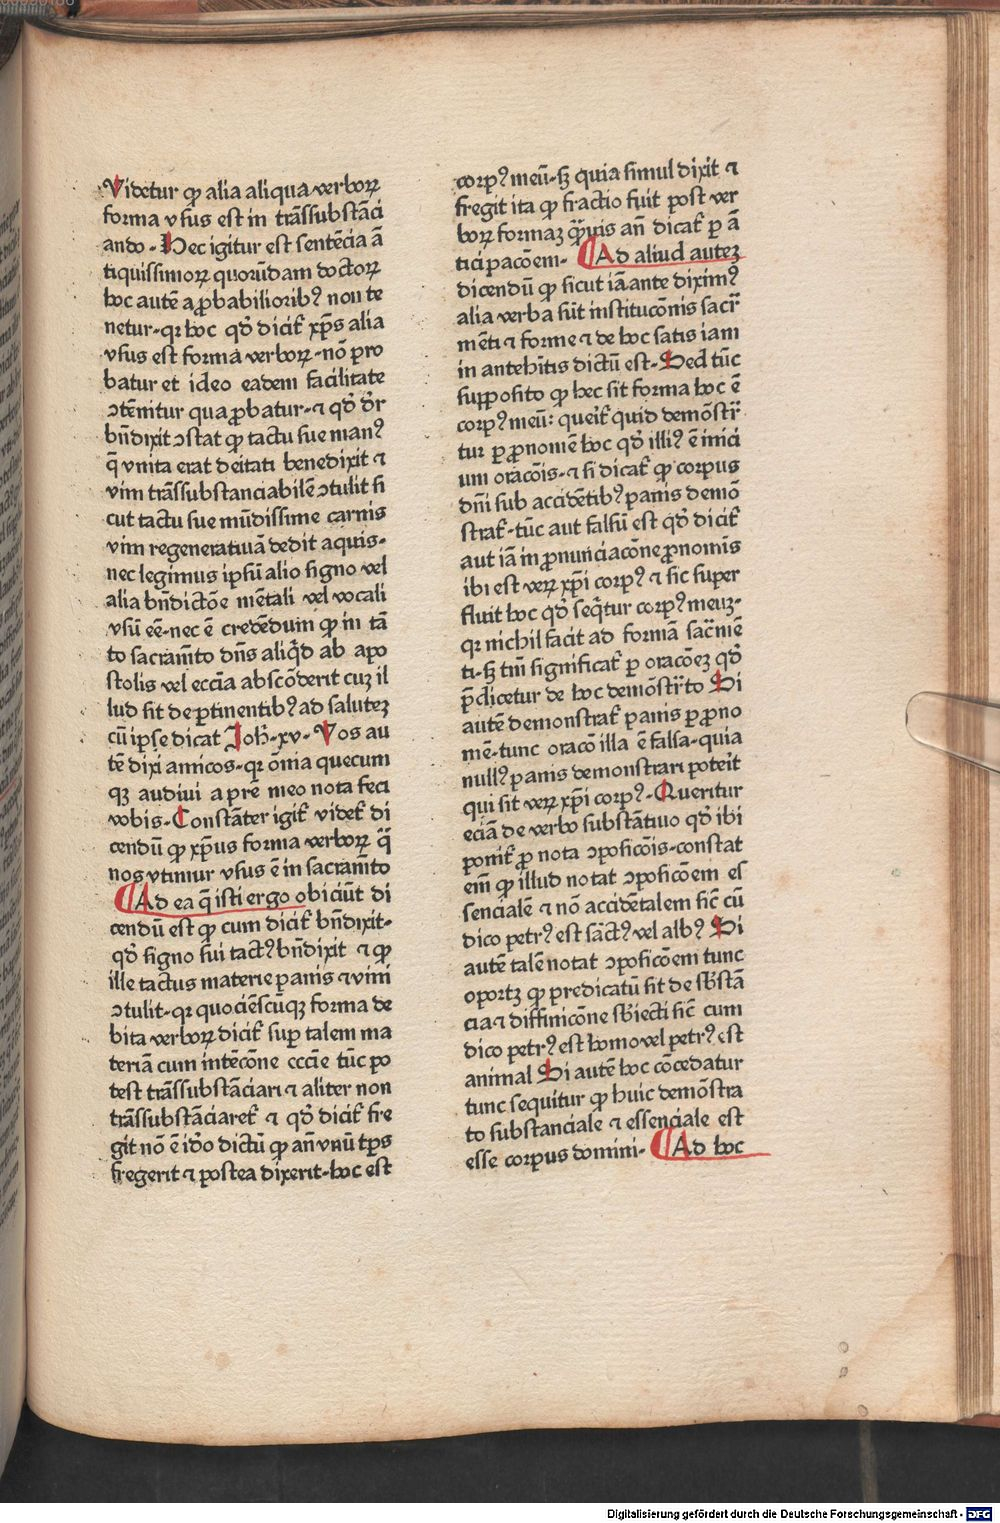 Videtur ꝙ alia aliqua verboꝝ
forma vsus est in trāssubstāci
ando. Hec igitur est sentēcia ā
tiquissimoꝝ quorūdam doctoꝝ
hoc autē a ꝓbabiliorib⁹ non te
netur. qꝛ hoc qđ dicit̃ xp̄s alia
vsus est forma verboꝝ. nō pro
batur et ideo eadem facilitate
ꝯtēnitur qua ꝓbatur. ⁊ qđ dr̄
bn̄dixit ꝯstat ꝙ tactu sue man⁹
q̄ vnita erat deitati benedixit ⁊
vim trāssubstanciabilē ꝯtulit si
cut tactu sue mūdissime carnis
vim regeneratiuā dedit aquis.
nec legimus ipsū alio signo vel
alia bn̄dictōe mētali vel vocali
vsū eē. nec ē credēdum ꝙ in tā
to sacram̄to dn̄s aliq̄d ab apo
stolis vel ecc̄ia abscōderit cuʒ il
lud sit de ꝑtinentib⁹ ad saluteʒ
cū ipse dicat Joh̄. xv. Vos au
tē dixi amicos. qꝛ om̄ia quecum
qʒ audiui a p̄re meo nota feci
vobis. Constāter igit̃ videt̃ di
cendū ꝙ xp̄us forma verboꝝ q̄
nos vtimur vsus ē in sacram̄to
¶ Ad ea q̄ isti ergo obiciūt di
cendū est ꝙ cum dicit̃ bn̄dixit.
qđ signo sui tact⁹ bn̄dixit ⁊ ꝙ
ille tactus materie panis ⁊ vini
ꝯtulit. qꝛ quociēscūqʒ forma de
bita verboꝝ dicit̃ suꝑ talem ma
teriā cum intēcōne eccīe tūc po
test trāssubstāciari ⁊ aliter non
trāssubstāciaret̃ ⁊ qđ dicit̃ fre
git nō ē iđo dictū ꝙ an̄ vnū tp̄s
fregerit ⁊ postea dixerit. hoc est
corp⁹ meū. sʒ quia simul dixit ⁊
fregit ita ꝙ fractio fuit post ver
boꝝ formaʒ q̄uis an̄ dicat̃ ꝑ ā
ticipacōem. ¶ Ad aliud auteʒ
dicendū ꝙ sicut iā ante dixim⁹
alia verba sūt institucōnis sacr̄
mēti ⁊ forme ⁊ de hoc satis iam
in antehītis dictū est. Sed tūc
supposito ꝙ hec sit forma hoc ē
corp⁹ meū: querit̃ quid demōstr̄
tur ꝑ ꝓnomē hoc qđ illi⁹ ē inici
um oracōis. ⁊ si dicat̃ ꝙ corpus
dn̄i sub accidētib⁹ panis demō
strat̃. tūc aut falsū est qđ dicit̃
aut iā in ꝓnunciacōne ꝓnomīs
ibi est veꝝ xp̄i corp⁹ ⁊ sic super
fluit hoc qđ seq̄tur corp⁹ meuʒ.
qꝛ nichil facit ad formā sacr̄mē
ti. sʒ tm̄ significat̃ ꝑ oracōeʒ qđ
p̄dicetur de hoc demōstr̄to Si
autē demonstrat̃ panis ꝑ ꝓno
mē. tunc oracō illa ē falsa. quia
null⁹ panis demonstrari poterit
qui sit veꝝ xp̄i corp⁹. Queritur
eciā de verbo substātiuo qđ ibi
ponit̃ ꝓ nota ꝯposicōis. constat
em̄ ꝙ illud notat ꝯposicōem es
sencialē ⁊ nō accidētalem sic̄ cū
dico petr⁹ est sāct⁹ vel alb⁹ Si
autē talē notat ꝯposicōem tunc
oportʒ ꝙ predicatū sit de sb̄stā
cia ⁊ diffinicōne sb̄iecti sic̄ cum
dico petr⁹ est homo vel petr⁹ est
animal Si autē hoc cōcedatur
tunc sequitur ꝙ huic demōstra
to substanciale ⁊ essenciale est
esse corpus domini. ¶ Ad hoc
Digitalisierung gefördert durch die Deutsche Forschungsgemeinschaft - DFG